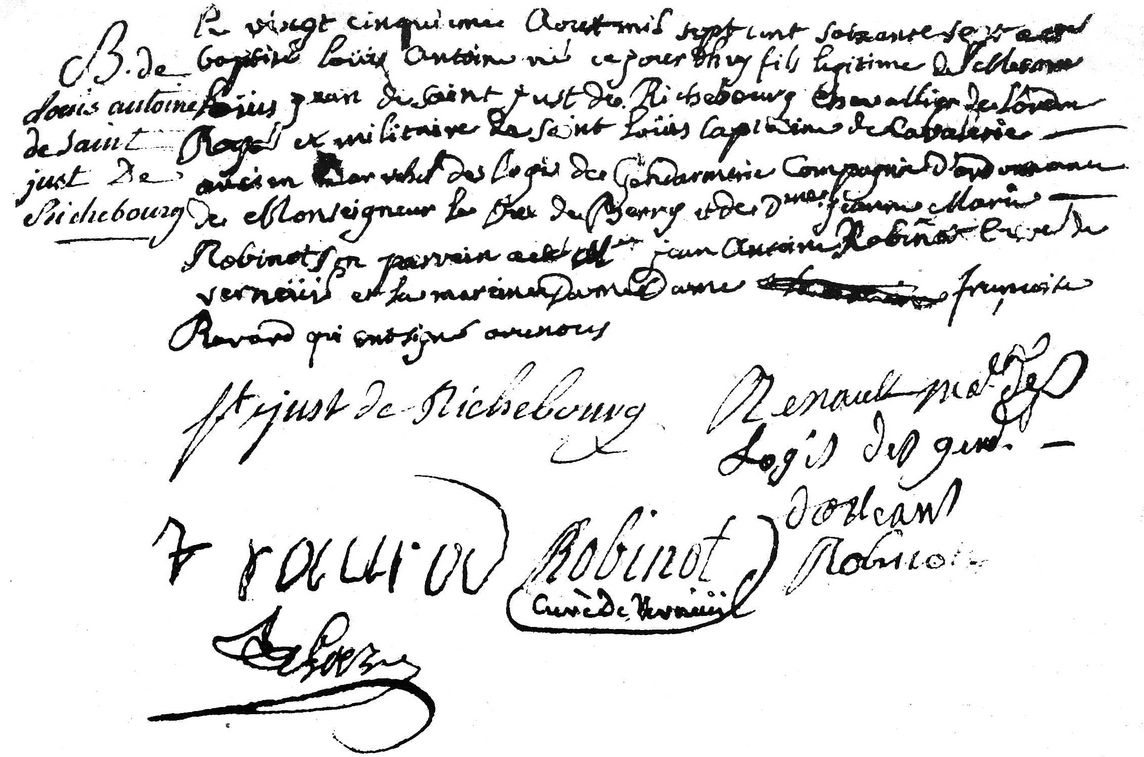 B. de
Louis antoine
de Saint
just De
Richebourg
Le vingt cinquieme Aoust mil sept cent soixante sept a été
baptisé loüis Antoine né ce jourdhuy fils legitime de Messire
loüis jean de Saint just de Richebourg chevallier de l'ordre
Royal et militaire de Saint loüis Capitaine de Cavalerie
ancien Marechal des logis de Gendarmerie Compagnie D'ordonnance
de Monseigneur le Duc de Berry et de Dme jeanne Marie
Robinot son parrain a été Me jean Antoine Robinot Curé de
verneüil et la marine Dame Dame françoise
Ravard qui ont signé avec nous
St just de Richebourg
Renault mal Des
Logis des gend.
d'orleans
f ravard
Robinot
Curè De Verneüil
Robinot